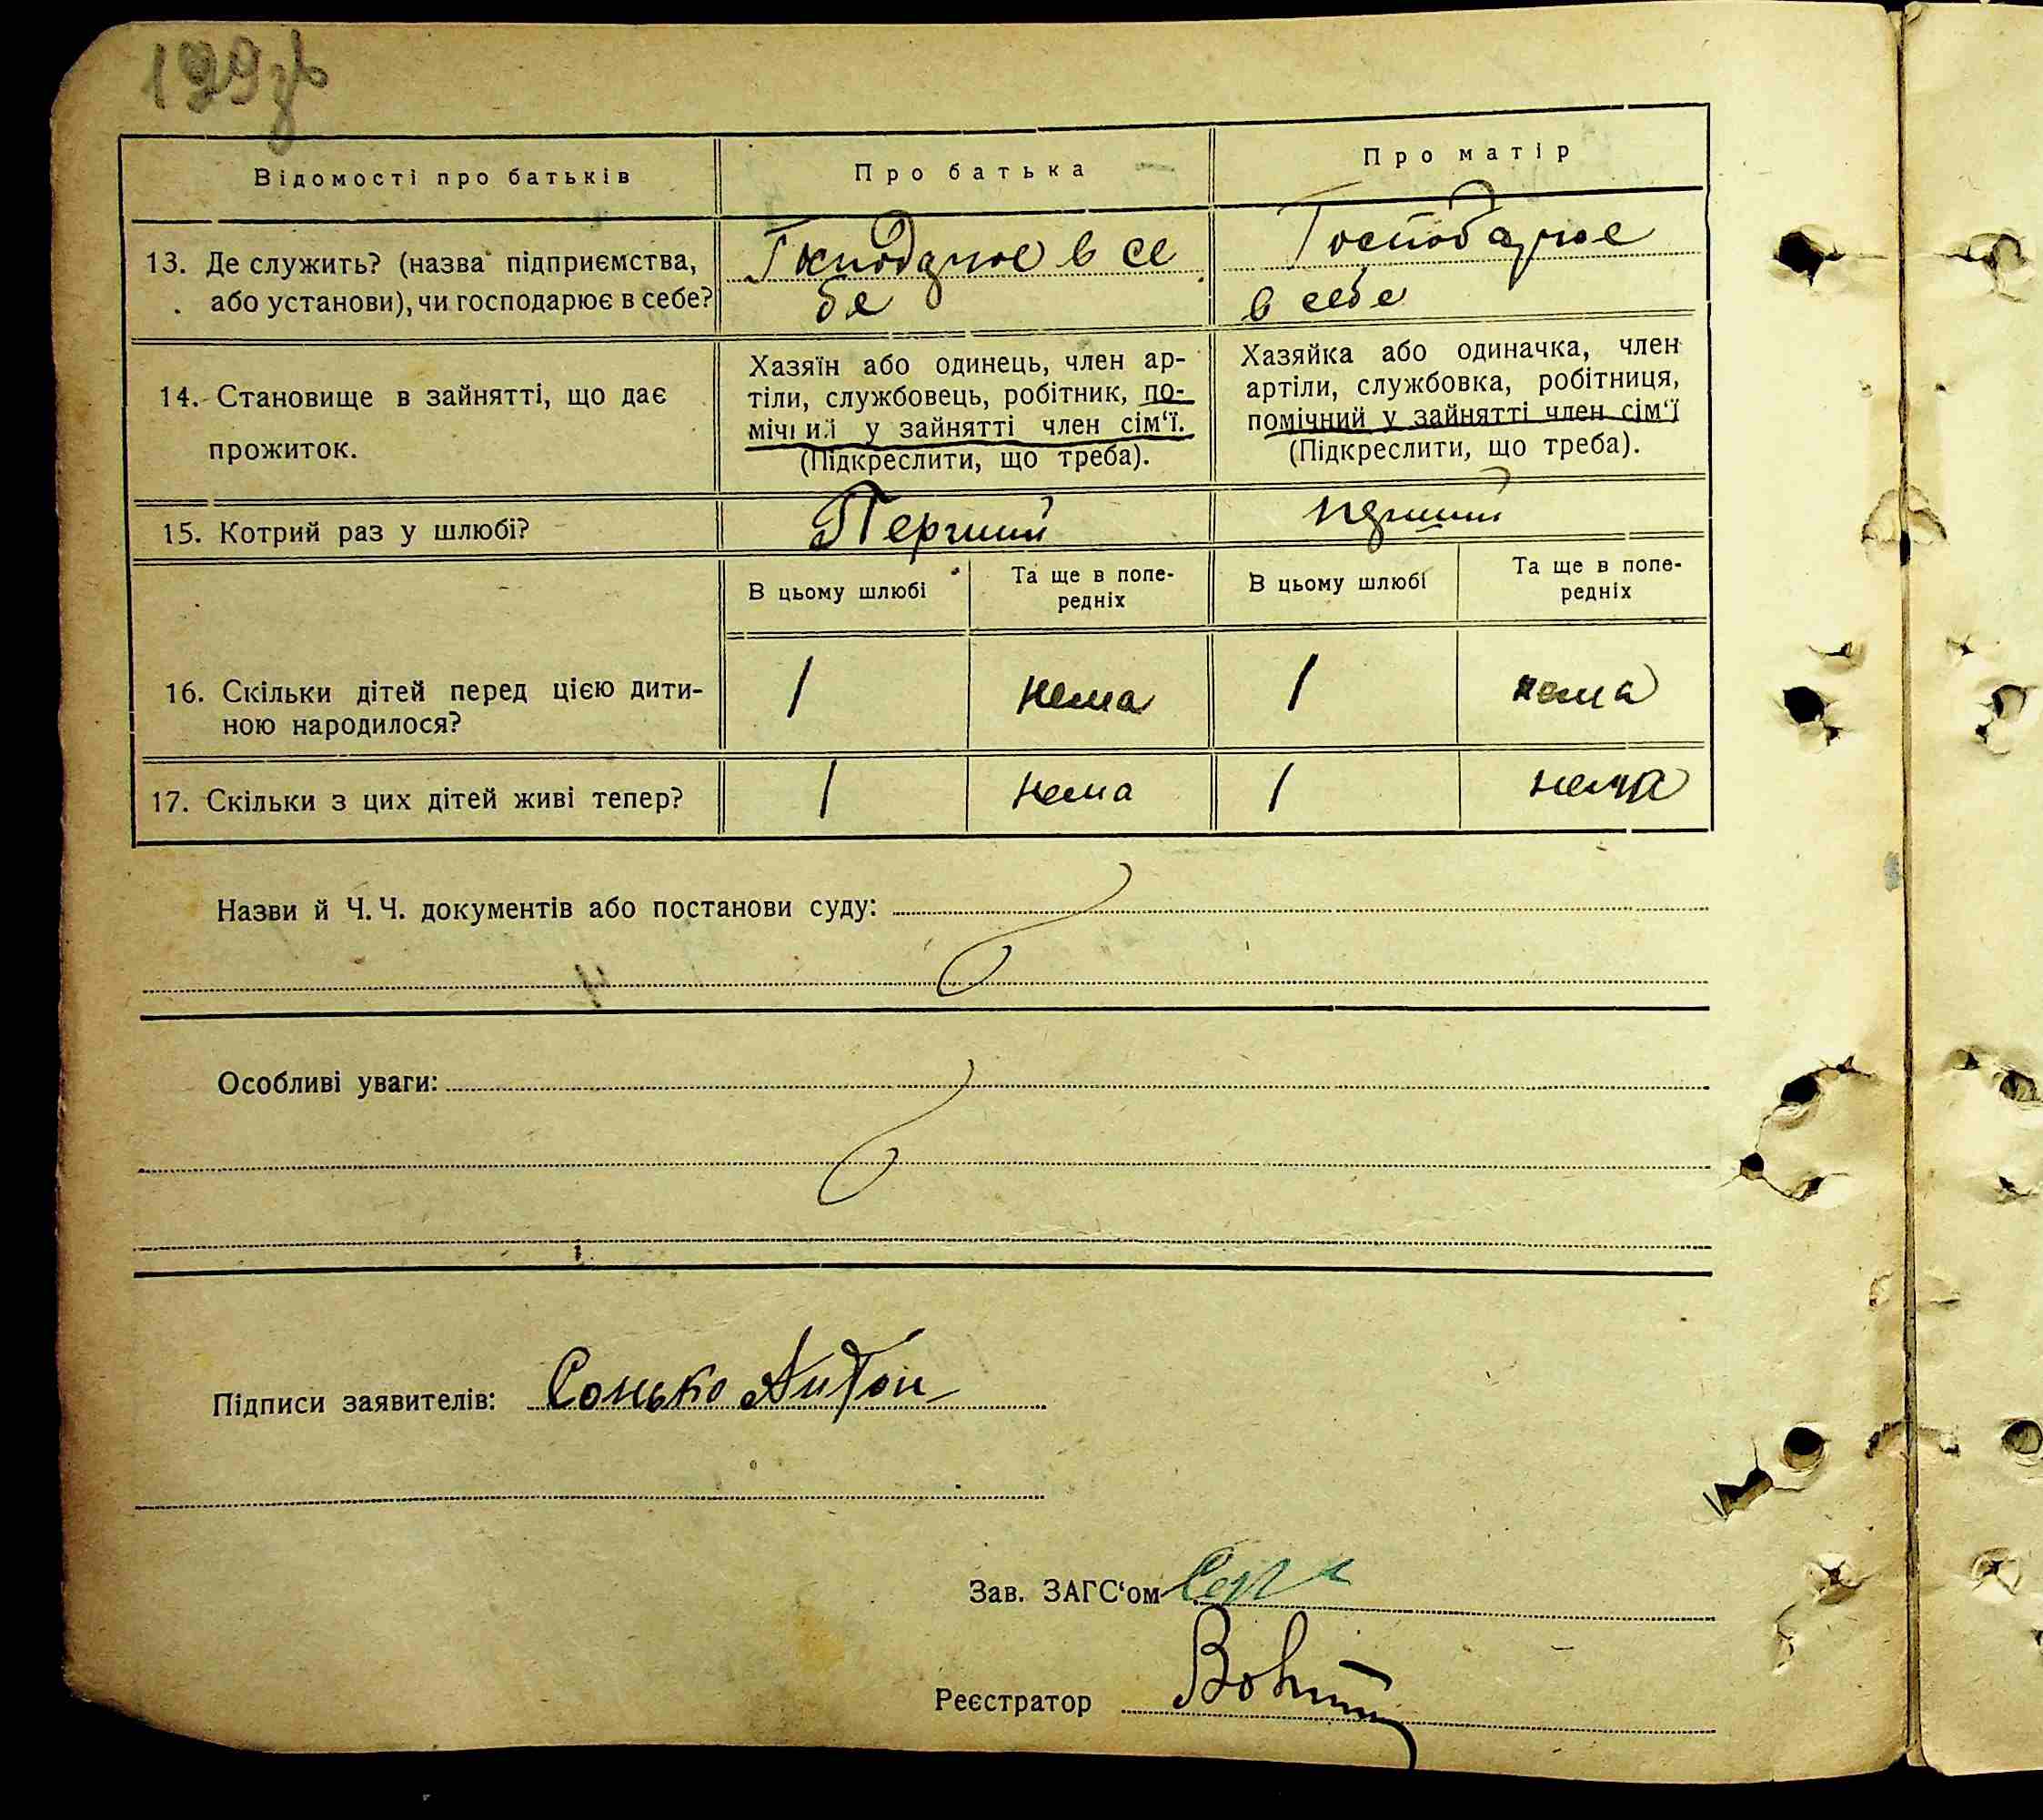 199зв
Відомості про батьків
Про батька
Про матір
13. Де служить? (назва підприємства,
або установи), чи господарює в себе?
Господарює в се
бе
Господарює
в себе
14. Становище в зайнятті, що дає
прожиток.
Хазяїн або одинець, член ар-
тіли, службовець, робітник, по-
мічний у зайнятті член сім‘ї.
(Підкреслити, що треба).
Хазяйка або одиначка, член
артіли, службовка, робітниця,
помічний у зайнятті член сім‘ї
(Підкреслити, що треба).
15. Котрий раз у шлюбі?
Перший
перший
В цьому шлюбі
Та ще в попе-
редніх
В цьому шлюбі
Та ще в попе-
редніх
16. Скільки дітей перед цією дити-
ною народилося?
1
нема
1
нема
17. Скільки з цих дітей живі тепер?
1
нема
1
нема
Назви й Ч. Ч. документів або постанови суду:
Особливі уваги:
Підписи заявителів: Сонько Антон
Зав. ЗАГС‘ом
Реєстратор